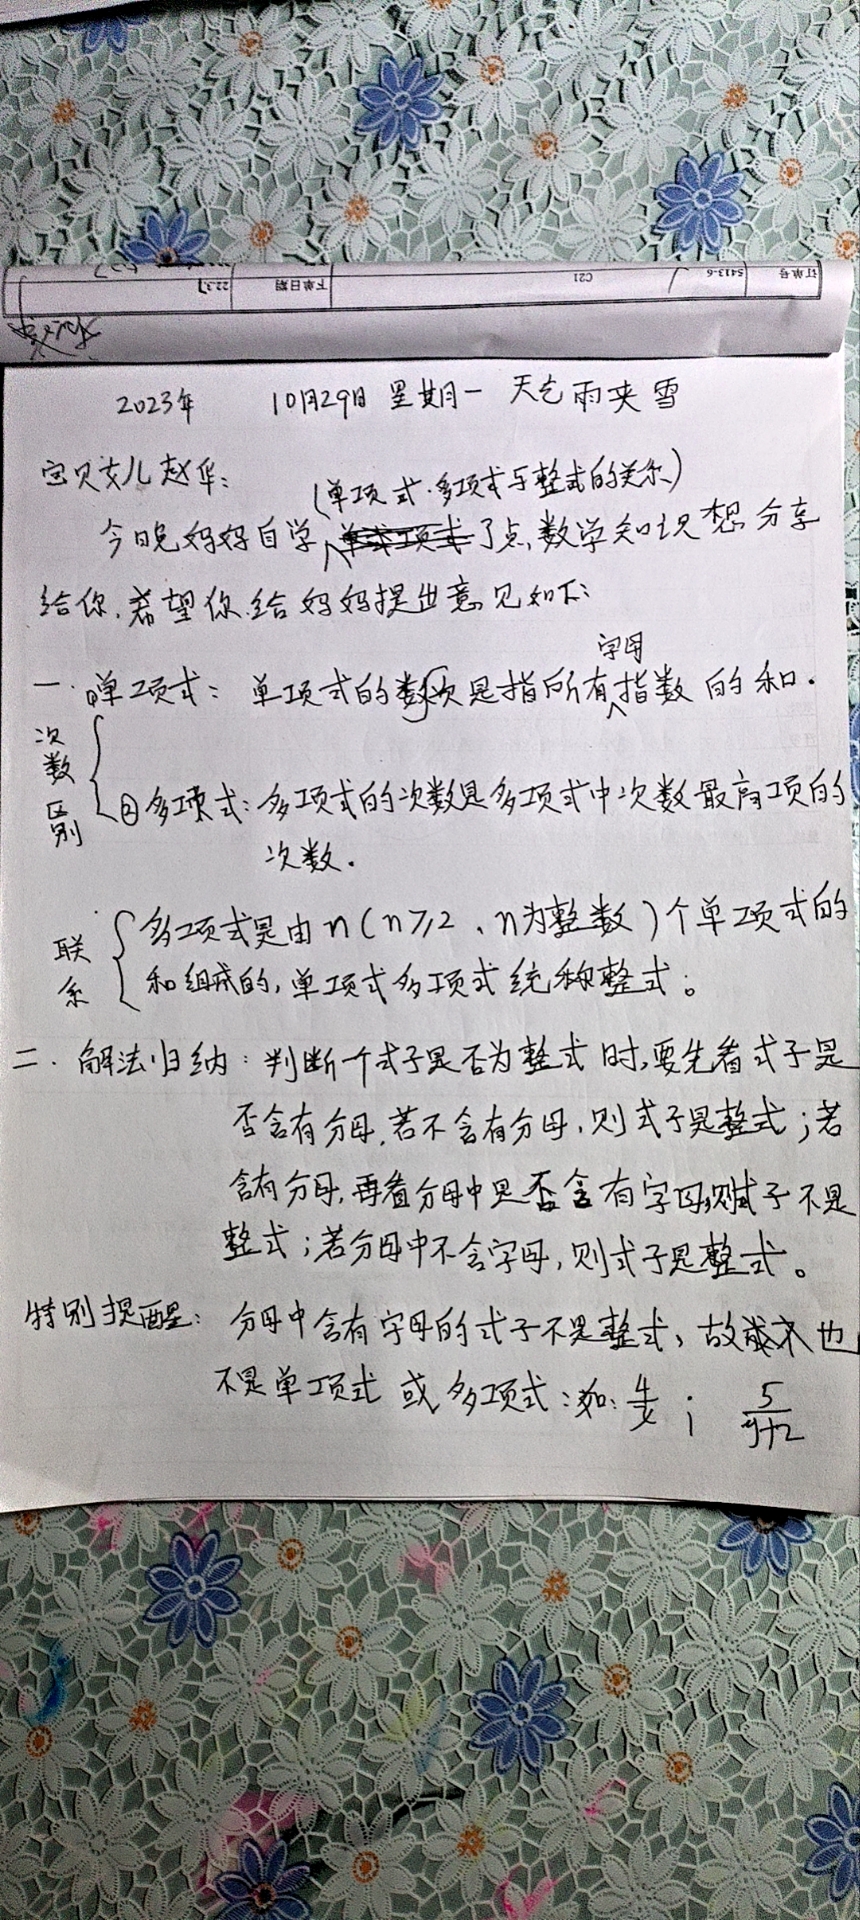 订单号 5413-6 C21 下单日期 22.3.7
2023年 10月29日 星期一 天气雨夹雪
宝贝女儿赵华:
(单项式.多项式与整式的关系)
今日晚妈妈自学了点数学知识想分享
给你,希望你给妈妈提出意见如下:
字母
一.①单项式: 单项式的次数是指所有指数的和.
次数区别
②多项式:多项式的次数是多项式中次数最高项的
次数.
联系
多项式是由n(n≥2、n为整数)个单项式的
和组成的,单项式多项式统称整式。
二.解法归纳:判断一个式子是否为整式时,要先看式子是
否含有分母,若不含有分母,则式子是整式;若
含有分母,再看分母中是否含有字母,则式子不是
整式;若分母中不含字母,则式子是整式。
特别提醒: 分母中含有字母的式子不是整式,故也
不是单项式或多项式:如:4/x; 5/y+2